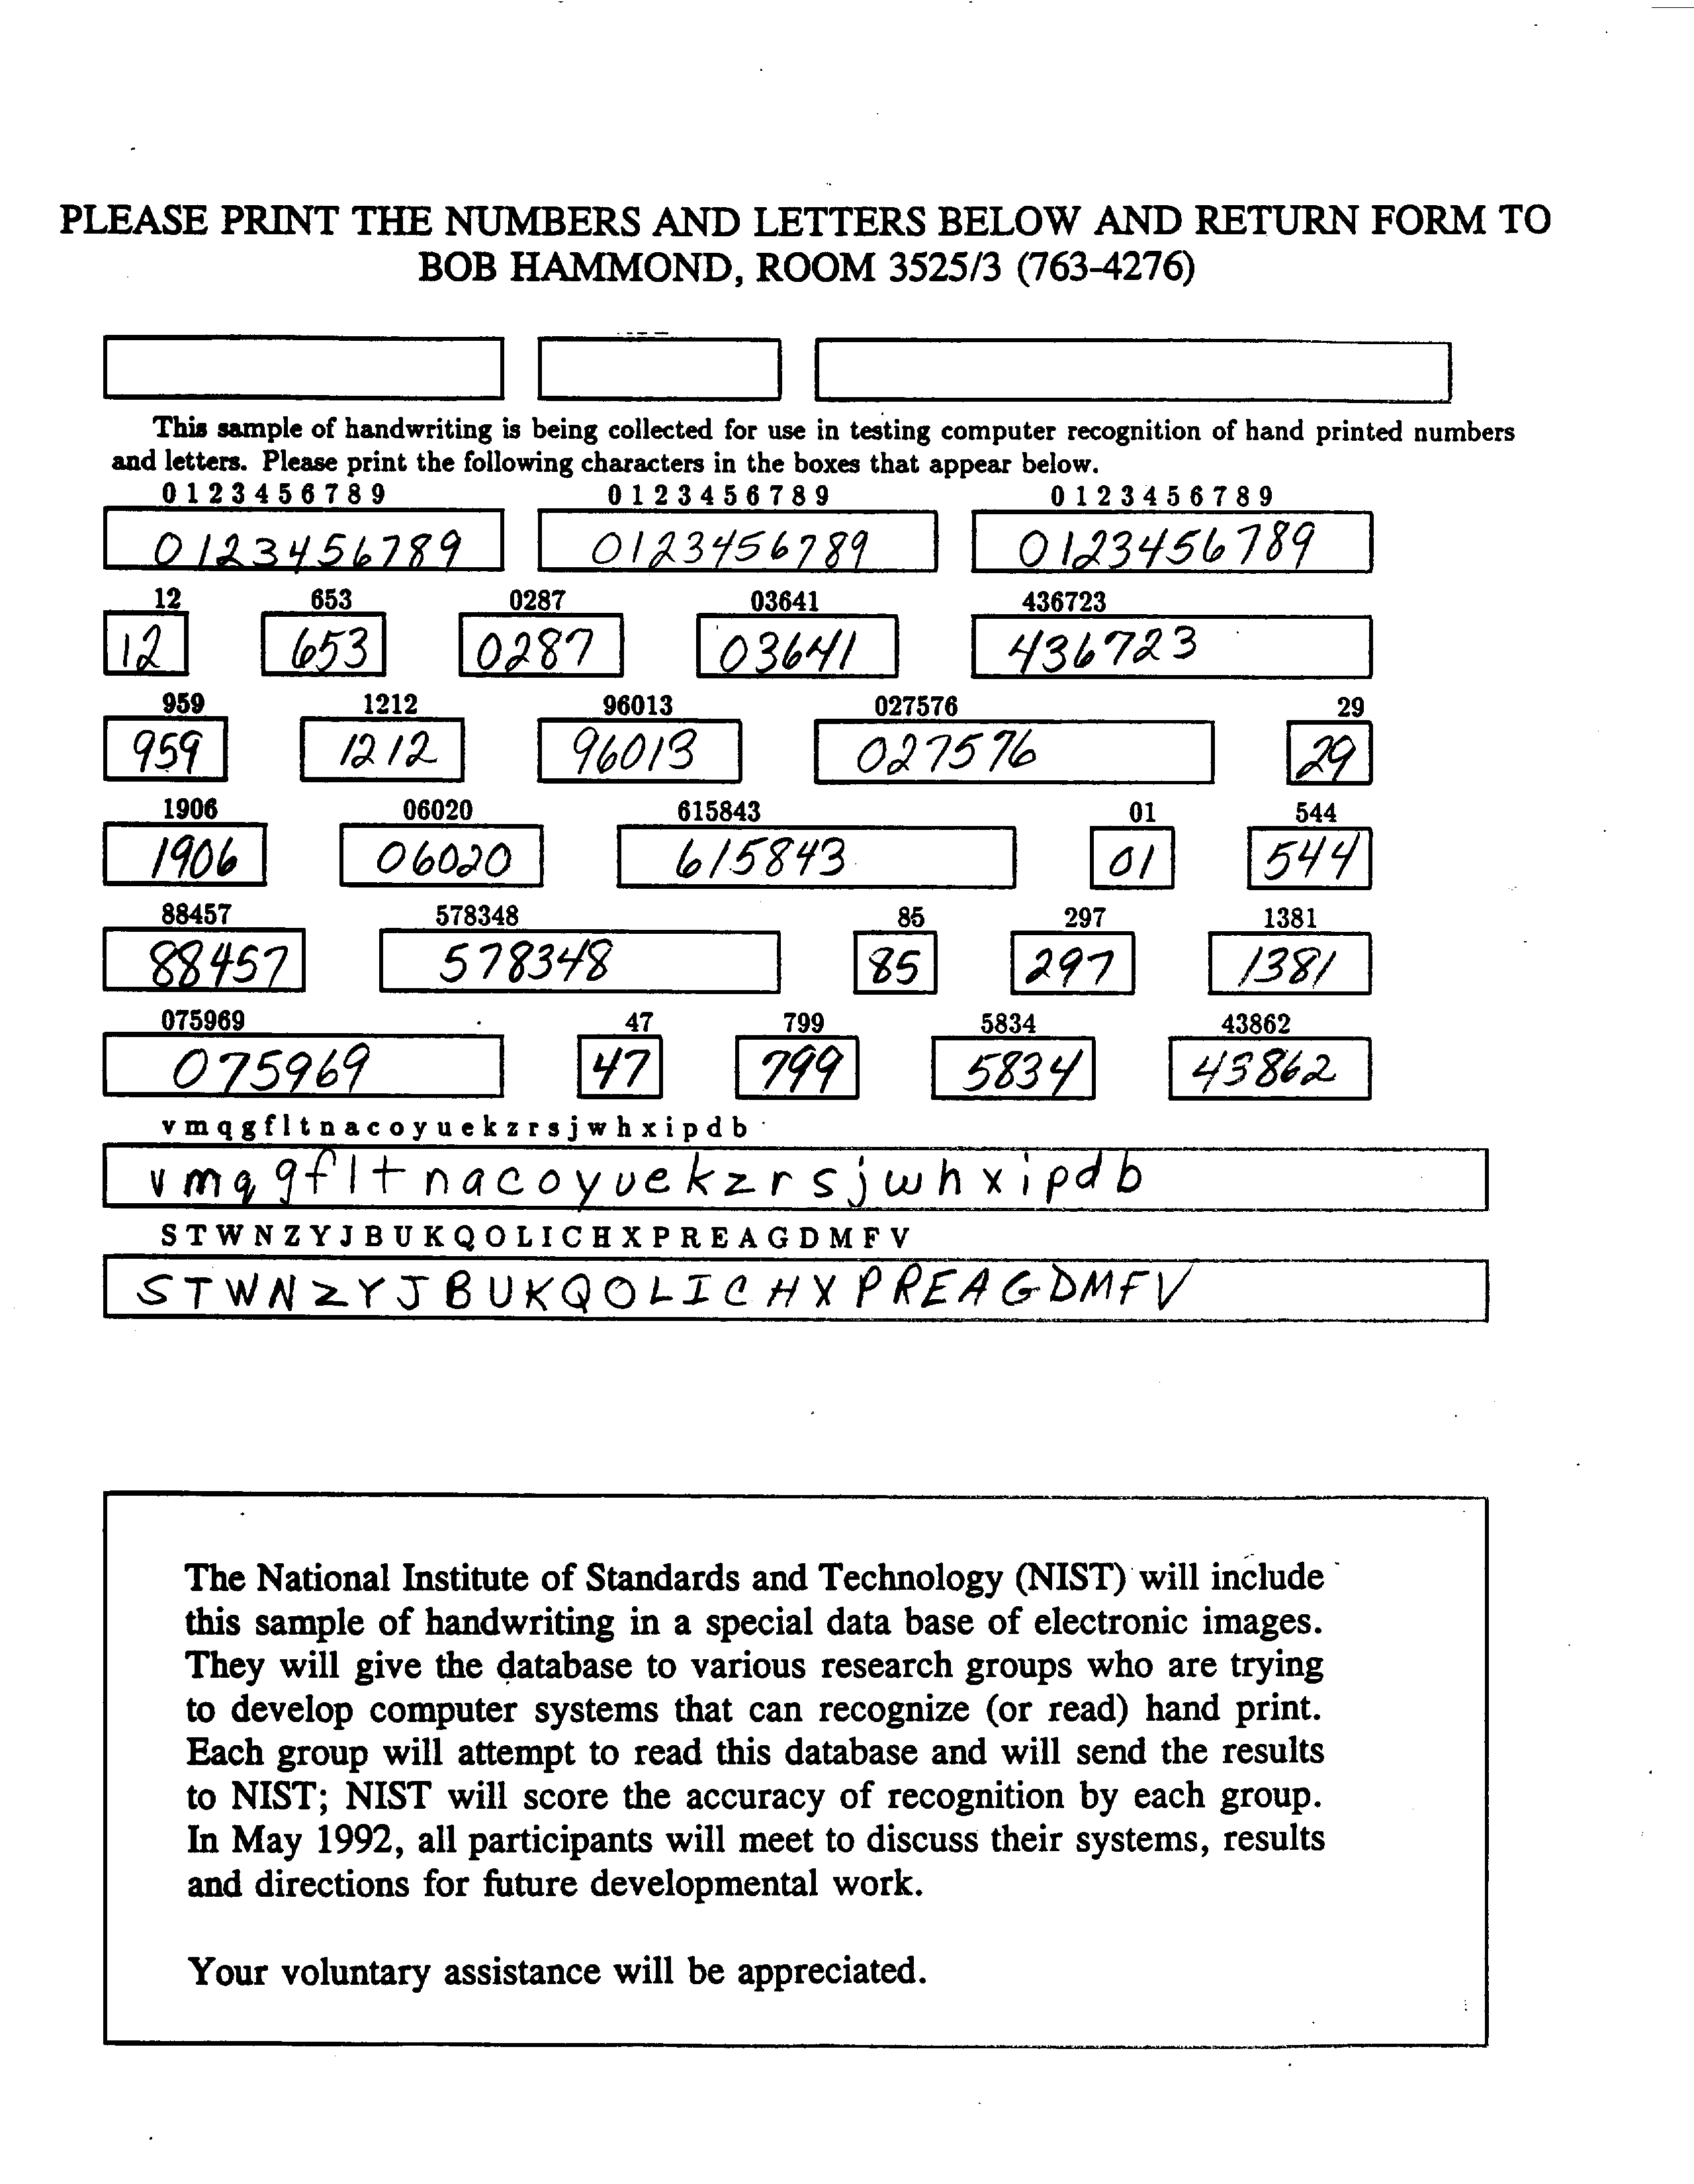 PLEASE PRINT THE NUMBERS AND LETTERS BELOW AND RETURN FORM TO
BOB HAMMOND, ROOM 3525/3 (763-4276)
This sample of handwriting is being collected for use in testing computer recognition of hand printed numbers
and letters. Please print the following characters in the boxes that appear below.
0 1 2 3 4 5 6 7 8 9 0 1 2 3 4 5 6 7 8 9 0 1 2 3 4 5 6 7 8 9
0123456789 0123456789 0123456789
12 653 0287 03641 436723
12 653 0287 03641 436723
959 1212 96013 027576 29
959 1212 96013 027576 29
1906 06020 615843 01 544
1906 06020 615843 01 544
88457 578348 85 297 1381
88457 578348 85 297 1381
075969 47 799 5834 43862
075969 47 799 5834 43862
v m q g f l t n a c o y u e k z r s j w h x i p d b
v m q g f l t n a c o y u e k z r s j w h x i p d b
S T W N Z Y J B U K Q O L I C H X P R E A G D M F V
S T W N Z Y J B U K Q O L I C H X P R E A G D M F V
The National Institute of Standards and Technology (NIST) will include
this sample of handwriting in a special data base of electronic images.
They will give the database to various research groups who are trying
to develop computer systems that can recognize (or read) hand print.
Each group will attempt to read this database and will send the results
to NIST; NIST will score the accuracy of recognition by each group.
In May 1992, all participants will meet to discuss their systems, results
and directions for future developmental work.
Your voluntary assistance will be appreciated.